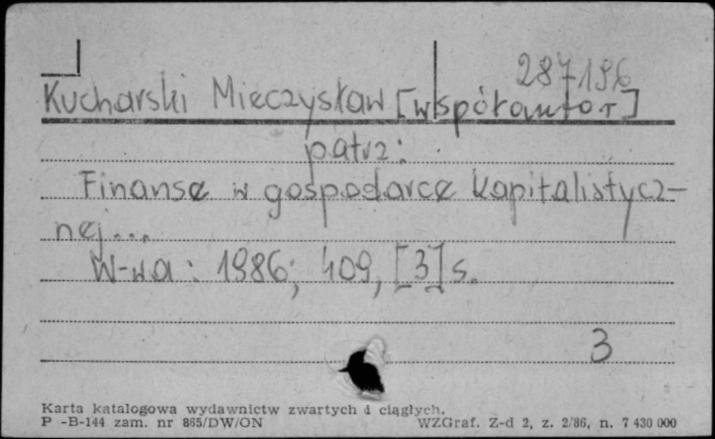 287196
Kucharski Mieczysław [współautor]
patrz:
Finanse w gospodarce kapitalistycz-
nej...
W-wa: 1986; 409, [3] s.
3
Karta katalogowa wydawnictw zwartych i ciągłych.
P -B-144 zam. nr 865/DW/ON WZGraf. Z-d 2, z. 2/86, n. 7 430 000